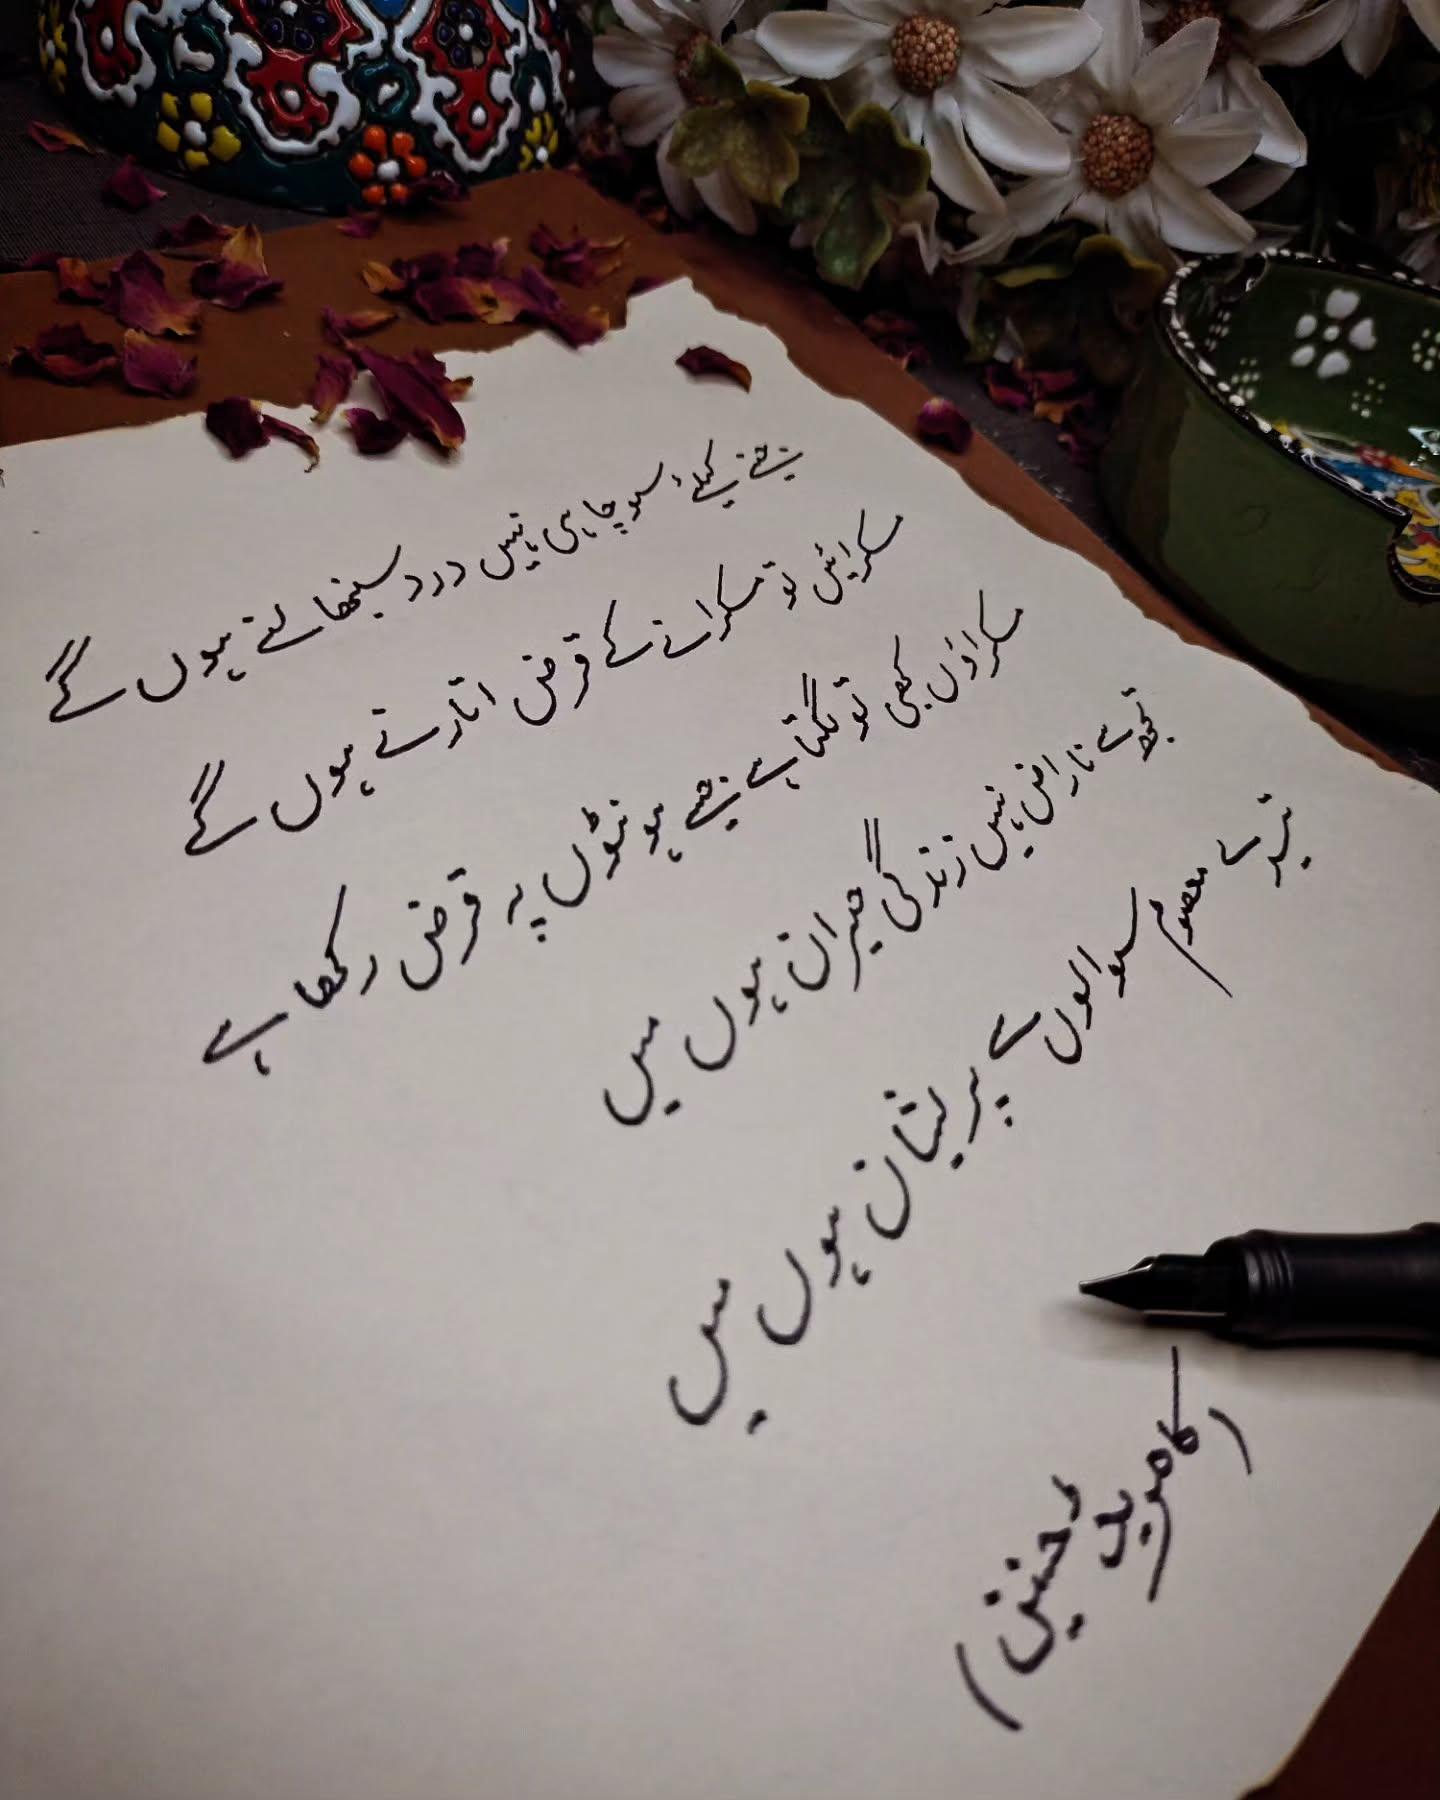 جینے کیلئے سوچا ہی نہیں درد سنبھالنے ہوں گے
مسکرائیں تو مسکرانے کے قرض اتارنے ہوں گے
مسکراؤں کبھی تو لگتا ہے جیسے ہونٹوں پہ قرض رکھا ہے
تجھ سے ناراض نہیں زندگی حیران ہوں میں
تیرے معصوم سوالوں سے پریشان ہوں میں